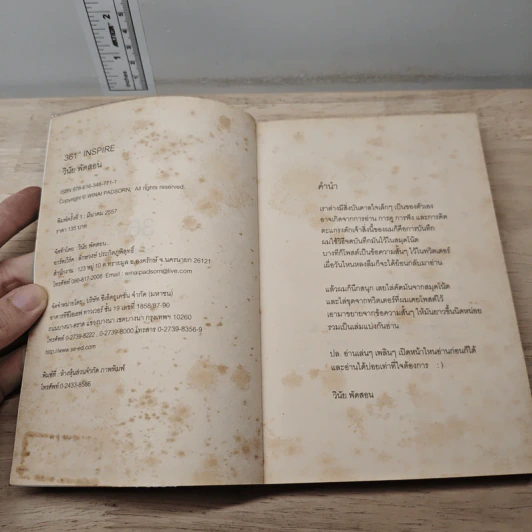 361° INSPIRE
วินัย พัดสอน
ISBN 978-616-348-771-1
Copyright © WINAI PADSORN, All rights reserved.
พิมพ์ครั้งที่ 1 : มีนาคม 2557
ราคา 135 บาท
จัดทำโดย : วินัย พัดสอน
สำนักงาน : 123 หมู่ 10 ต.ทรายมูล อ.องครักษ์ จ.นครนายก 26121
Email : winaipadsorn@live.com
จัดจำหน่ายโดย บริษัท ซีเอ็ดยูเคชั่น จำกัด (มหาชน)
อาคารทีซีไอเอฟ ทาวเวอร์ ชั้น 19 เลขที่ 1858/87-90
ถนนบางนา-ตราด แขวงบางนา เขตบางนา กรุงเทพฯ 10260
โทรศัพท์ 0-2739-8222, 0-2739-8000 โทรสาร 0-2739-8356-9
http://www.se-ed.com
พิมพ์ที่ : ห้างหุ้นส่วนจำกัด ภาพพิมพ์
โทรศัพท์ 0-2433-8586
คำนำ
เราต่างมีสิ่งบันดาลใจเล็กๆ เป็นของตัวเอง
อาจเกิดจากการอ่าน การดู การฟัง และการคิด
ตะแกรงดักเจ้าสิ่งนี้ของผมก็คือการบันทึก
ผมใช้วิธีจดบันทึกมันไว้ในสมุดโน้ต
บางทีก็โพสต์เป็นข้อความสั้นๆ ไว้ในทวิตเตอร์
เผื่อวันไหนหลงลืมก็จะได้ย้อนกลับมาอ่าน
แล้วผมก็นึกสนุก เลยไล่คัดมันจากสมุดโน้ต
และไล่ขุดจากทวิตเตอร์ที่ผมเคยโพสต์ไว้
เอามาขยายจากข้อความสั้นๆ ให้มันยาวขึ้นนิดหน่อย
รวมเป็นเล่มแบ่งกันอ่าน
ปล. อ่านเล่นๆ เพลินๆ เปิดหน้าไหนอ่านก่อนก็ได้
และอ่านได้บ่อยเท่าที่ใจต้องการ :)
วินัย พัดสอน
inches
1
2